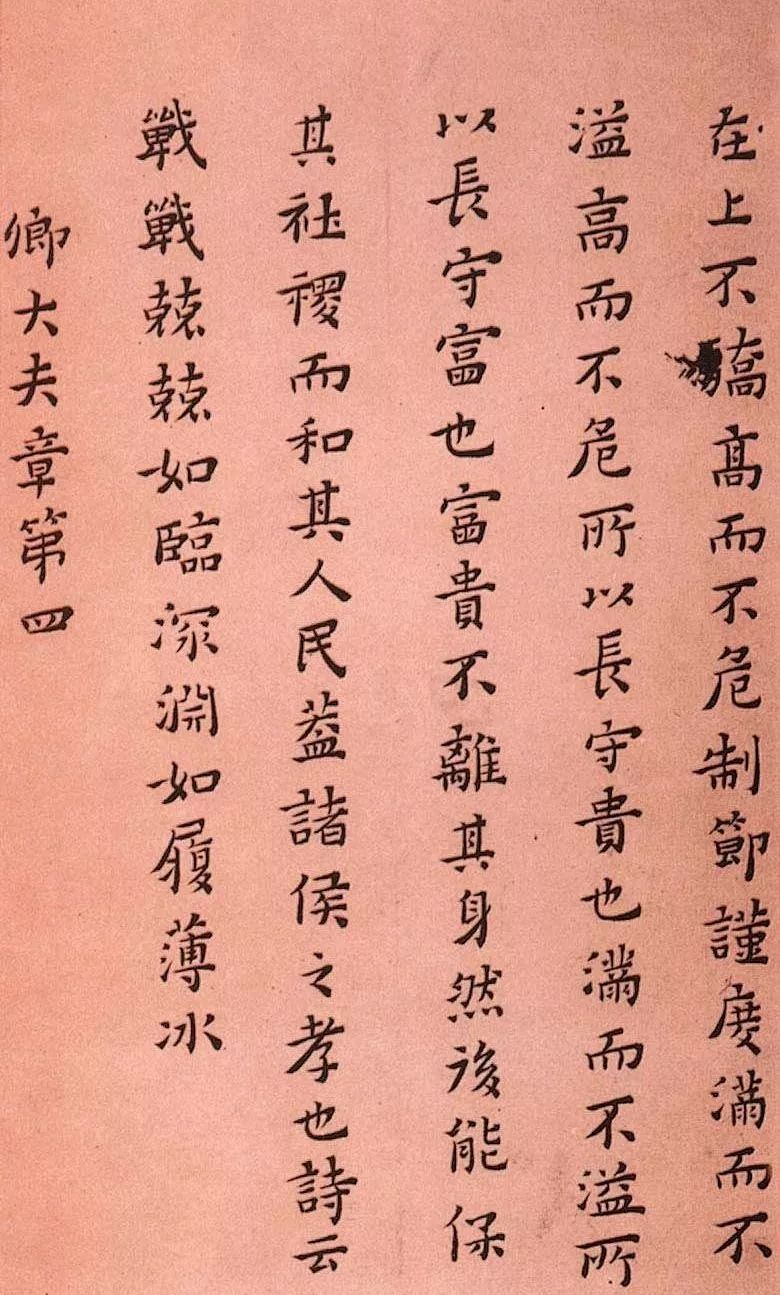 在上不驕高而不危制節謹度滿而不
溢高而不危所以長守貴也滿而不溢所
以長守富也富貴不離其身然後能保
其社稷而和其人民蓋諸侯之孝也詩云
戰戰兢兢如臨深淵如履薄冰
卿大夫章第四